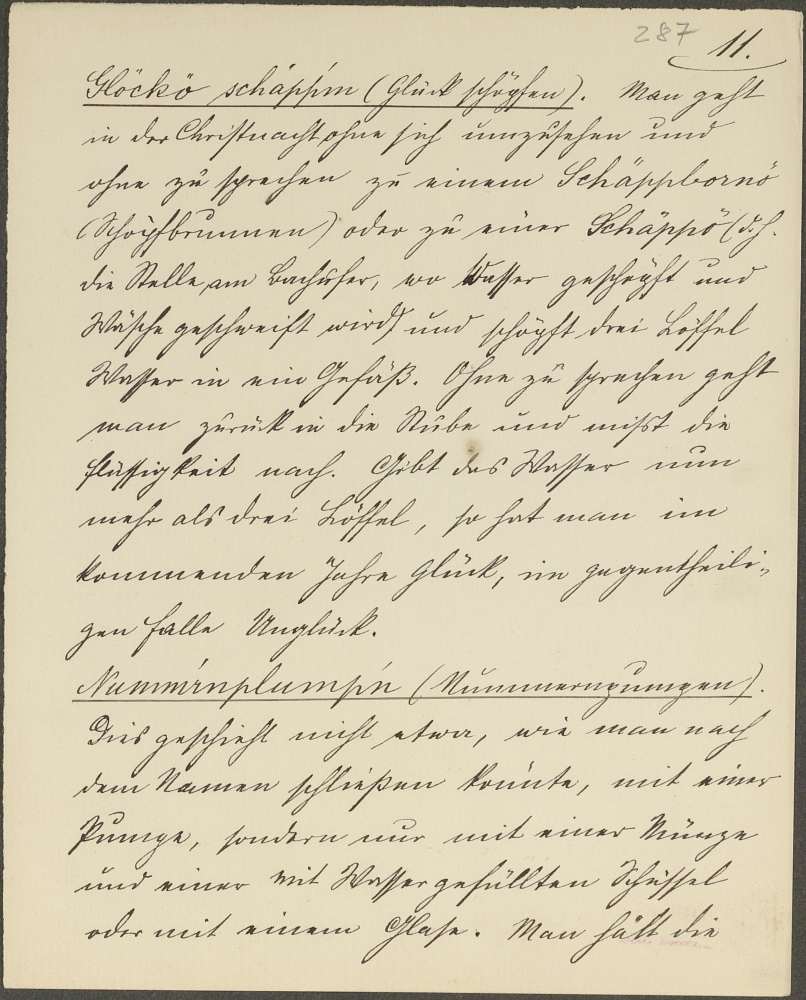 287 11.
Glöckö schäppin (Glück schöpfen). Man geht
in der Christnacht, ohne sich umzusehen und
ohne zu sprechen zu einem Schäppbornö
(Schöpfbrunnen) oder zu einer Schäppö (d. h.
die Stelle am Bachufer, wo Wasser geschöpft und
Wäsche geschweift wird) und schöpft drei Löffel
Wasser in ein Gefäß. Ohne zu sprechen geht
man zurück in die Stube und mißt die
Flüssigkeit nach. Gibt das Wasser nun
mehr als drei Löffel, so hat man im
kommenden Jahre Glück, im gegentheili-
gen Falle Unglück.
(Nummernpumpen).
Dies geschieht nicht etwa, wie man nach
dem Namen schließen könnte, mit einer
Pumpe, sondern nur mit einer Münze
und einer mit Wasser gefüllten Schüssel
oder mit einem Glase. Man hält die